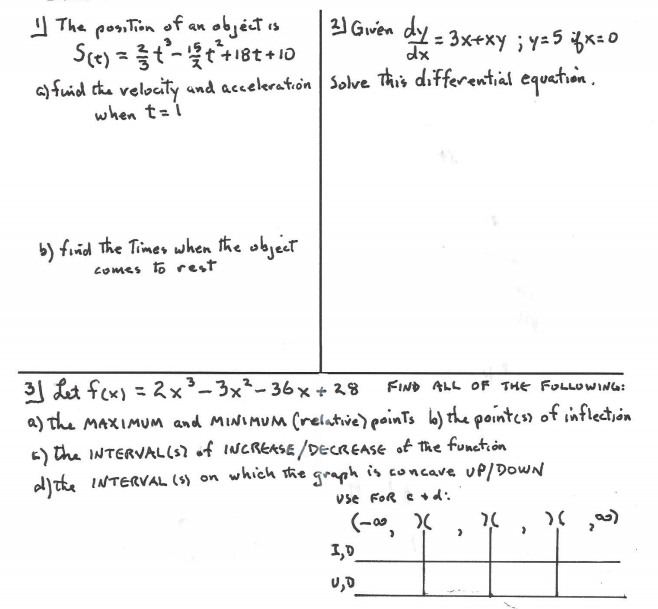 1) The position of an object is
S(t) = 2/3 t³ - 15/2 t² + 18t + 10
a) find the velocity and acceleration
when t = 1
b) find the Times when the object
comes to rest
2) Given dy/dx = 3x+xy ; y=5 if x=0
Solve this differential equation.
3) Let f(x) = 2x³ - 3x² - 36x + 28 FIND ALL OF THE FOLLOWING:
a) the MAXIMUM and MINIMUM (relative) points b) the point(s) of inflection
c) the INTERVAL(s) of INCREASE/DECREASE of the function
d) the INTERVAL(s) on which the graph is concave UP/DOWN
USE FOR c + d:
(-∞, )( , )( , )( , ∞)
I,D
U,D